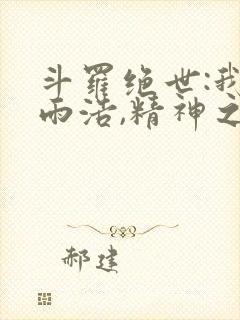 斗羅绝世:我
雨浩,精神之
郝建